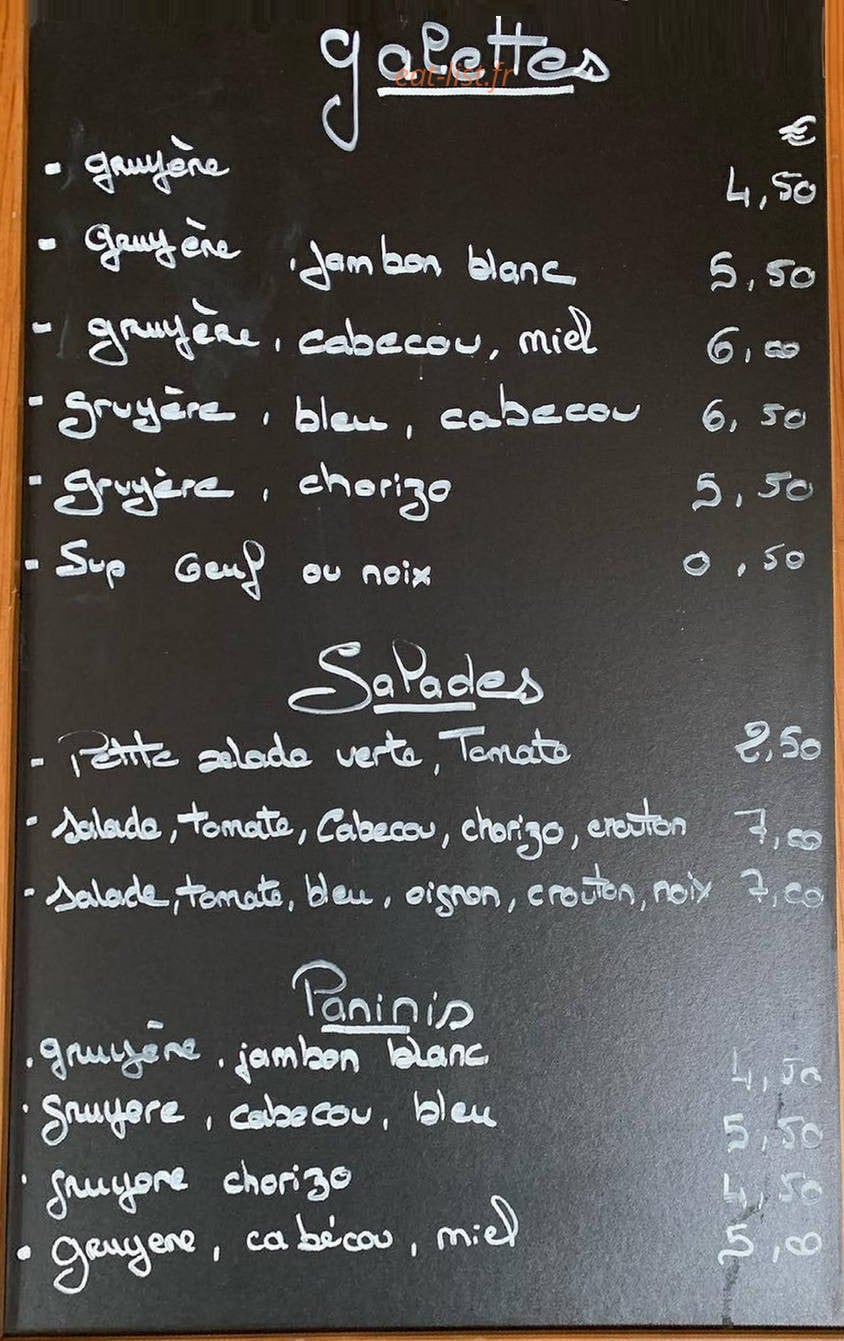 galettes
eat-list.fr
€
- gruyère 4,50
- gruyère, jambon blanc 5,50
- gruyère, cabecou, miel 6,00
- gruyère, bleu, cabecou 6,50
- gruyère, chorizo 5,50
- Sup Oeuf ou noix 0,50
Salades
- Petite salade verte, Tomate 2,50
- salade, tomate, Cabecou, chorizo, crouton 7,00
- salade, tomate, bleu, oignon, crouton, noix 7,00
Paninis
. gruyère, jambon blanc 4,50
. gruyere, cabecou, bleu 5,50
. gruyere chorizo 4,50
. gruyere, cabécou, miel 5,00